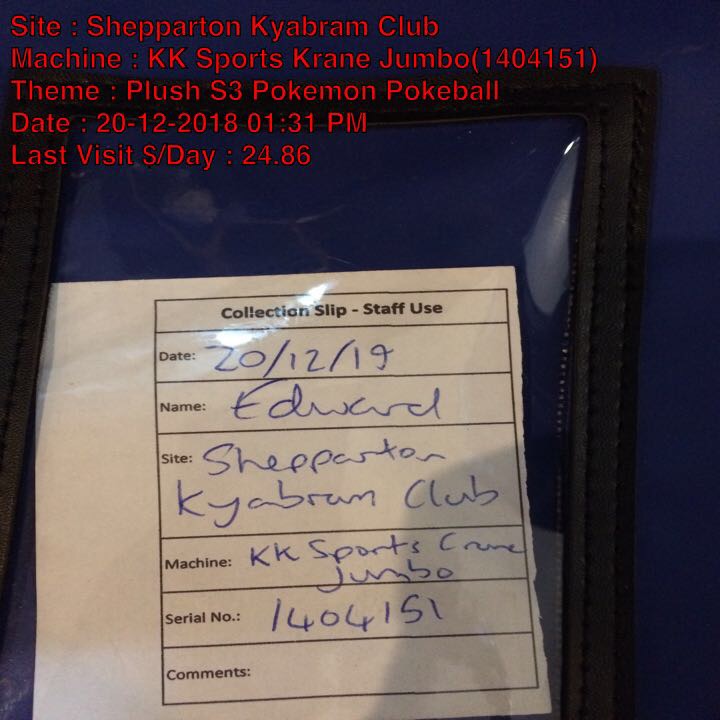 Site : Shepparton Kyabram Club
Machine : KK Sports Krane Jumbo(1404151)
Theme : Plush S3 Pokemon Pokeball
Date : 20-12-2018 01:31 PM
Last Visit $/Day : 24.86
Collection Slip - Staff Use
Date: 20/12/19
Name: Edward
Site: Shepparton
Kyabram Club
Machine: KK Sports Crane
Jumbo
Serial No.: 1404151
Comments: